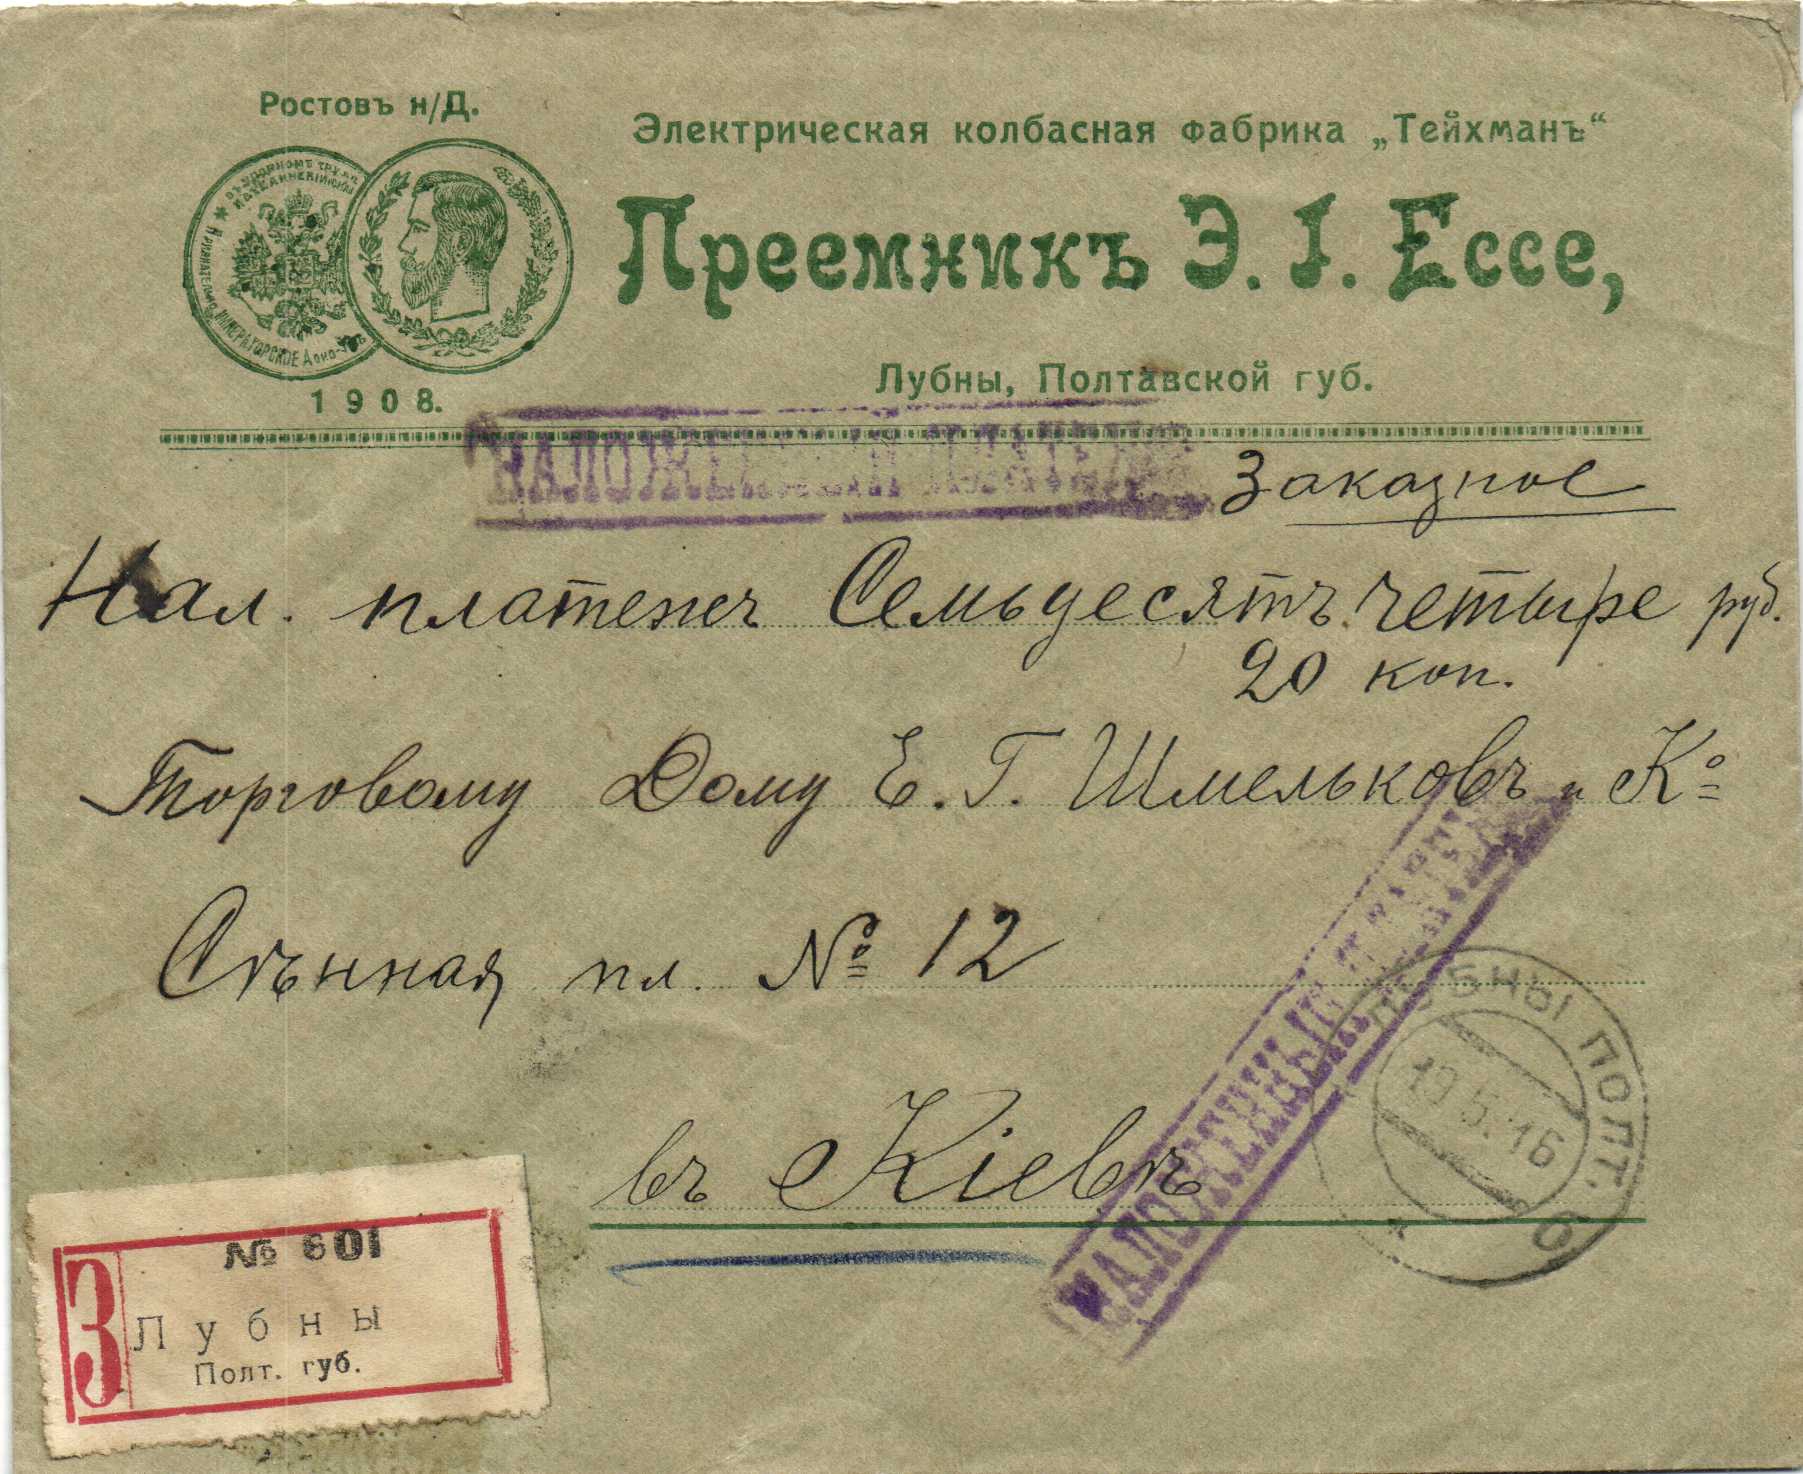 Ростовъ н/Д.
ИМПЕРАТОРСКОЕ
1908.
Электрическая колбасная фабрика „Тейхманъ“
Преемникъ Э. І. Ессе,
Лубны, Полтавской губ.
НАЛОЖЕННЫЙ ПЛАТЕЖЪ
Заказное
Нал. платежъ Семьдесятъ четыре руб.
20 коп.
Торговому Дому Е. Г. Шмельковъ и Ко
Сѣнная пл. № 12
въ Кіевѣ
НАЛОЖЕННЫЙ ПЛАТЕЖЪ
ЛУБНЫ ПОЛТ.
19.5.16
№ 601
З
Лубны
Полт. губ.